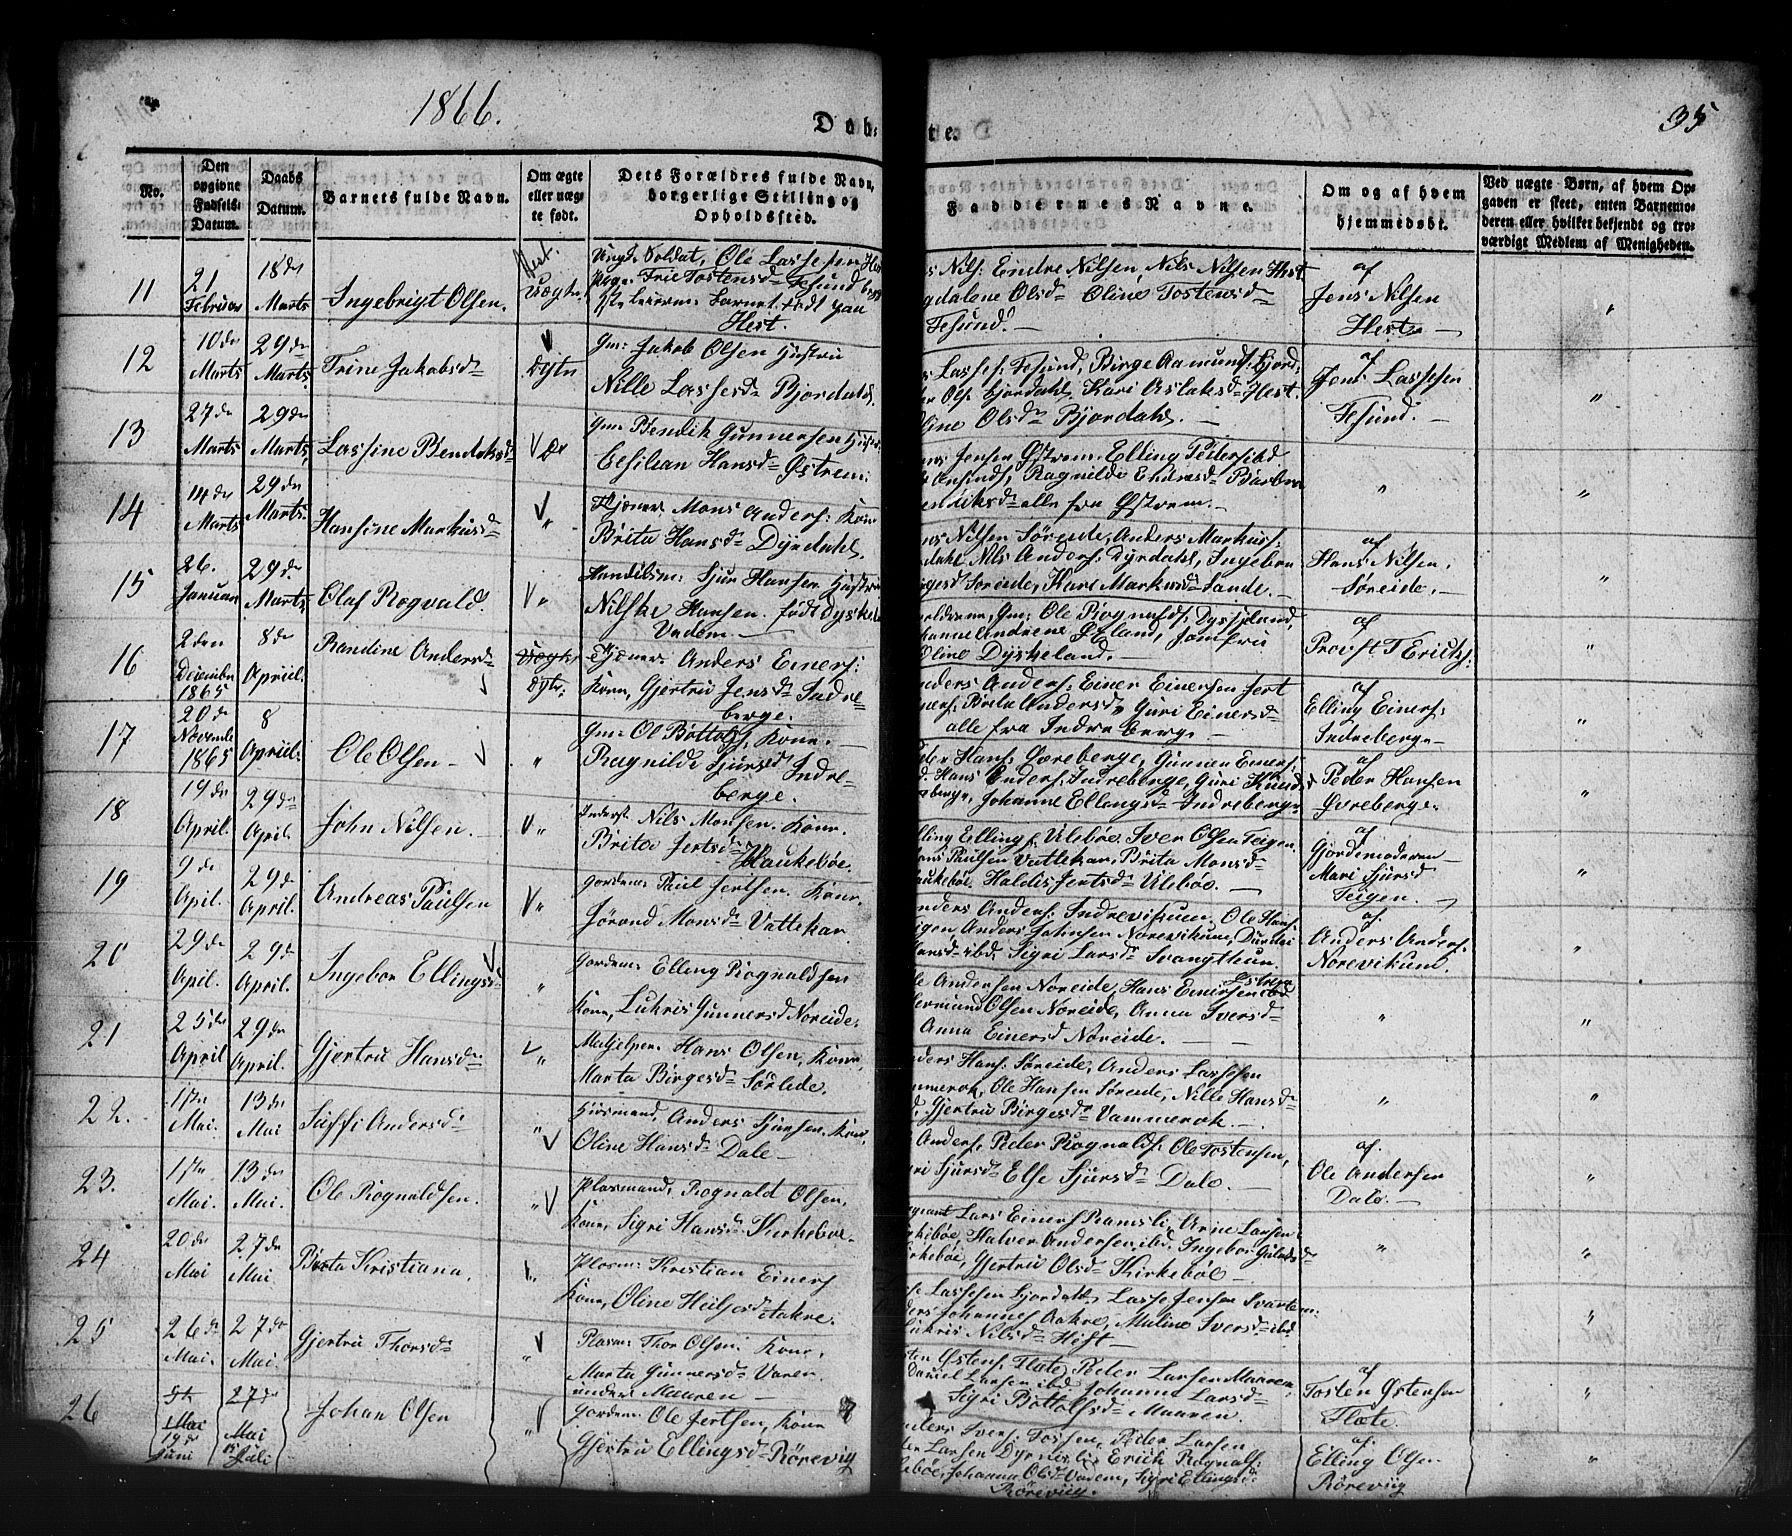 1866.
Døb-
te.
35
No.
Den opgivne Fødsels-Datum.
Daabs Datum.
Barnets fulde Navn.
Om ægte eller uægte født.
Dets Forældres fulde Navn, borgerlige Stilling og Opholdssted.
Faddernes Navne.
Om og af hvem hjemmedøbt.
Ved uægte Børn, af hvem Opgaven er skeet, enten Barnemoderen eller hvilket bekjendt og troværdigt Medlem af Menigheden.
11
21 Februar
18de Marts
Ingebrigt Olsen.
Uægte.
Soldat, Ole Lassesen Hest
Pige Frie Tostensd Tesund
Barnet født paa
Hest.
Nils: Endre Nilsen, Nils Nilsen Hest
Olsd Oline Tostensd
Tesund.
af
Jens Nilsen
Hest
"
12
10de Marts
29de Marts
Trine Jakobsd
Egte
Gm: Jakob Olsen Hustru
Nille Lassesd Bjordahl.
Lasses: Tesund, Birge Aamunds: Fjord,
Ols: Fjordahl, Kari Aslaksd Hest.
Oline Olsd Bjordahl.
af
Jens Lassesen
Tesund:
"
13
27de Marts
29de Marts
Lassine Bendiksd
Gm: Bendik Gunnersen
Cesilian Hansd Østrem:
Jensen Østrem. Elling
Ragnilde Endresd Barbra
alle fra Østrem.
"
"
14
14de Marts
29de Marts
Hansine Markusd
"
Tjæner Mons Anders: Kone
Brita Hansd Dyrdahl.
Nilsen Søreide, Anders Markus:
Nils Anders: Dyrdahl, Ingebor
Søreide, Kari Markusd Sande.
af
Hans Nilsen,
Søreide.
"
15
26. Januar
29de Marts
Olaf Rognvald.
"
Handelsm: Sjur Hansen, Hustru
Nilske Hansen. født Dyskeland
Vadem
Gm: Ole Rognalds: Dyskeland,
Andrene Øeland, Jomfru
Oline Dyskeland.
af
Provst T Erichs:
"
16
2den December 1865
8de Apriil
Randine Andersd
Uægte
Egte:
Tjæner Anders Einers:
Kone, Gjertru Jensd Indre-
berge.
Anders: Einer Einersen
Brita Andersd, Guri Einersd
alle fra Indreberge
af
Elling Einers:
Indreberge
"
17
20de November 1865
8 Apriil.
Ole Olsen
"
Gm: Ol Bottolfs, Kone.
Ragnilde Sjursd Indre-
berge.
Peder Hans: Gæreberge, Gunner Einers:
Hans Anders: Indreberge, Guri Knuds
Johanne Ellingsd Indreberge
af
Peder Hansen
Øvreberge.
"
18
19de April.
29de April
John Nilsen.
"
Inderst Nils Monsen. Kone.
Brite Jertsd
Haukebøe.
Elling Ellings Ulebøe Sver Olsen Teigen
Paulsen Vattekar, Brita Monsd
Haukebøe. Haldis Jertsd Ulebøe.
af
Gjordemoderen
Mari Sjursd
Teigen.
"
19
9de April.
29de April.
Andreas Paulsen
"
Gordm: Paul Jertsen. Kone
Jørand Monsd Vattekar.
Anders Anders: Indrevikum, Ole Hans:
Anders Johnsen Norevikum, Durdei
Hansd ibd. Sigri Larsd Svangthun.
af
Anders Anders:
Norevikum.
"
20
29de April.
29de April.
Ingebor Ellingsd
"
Gordm: Elling Rognaldsen
Kone, Lukris Gunnersd Noreide.
Ole Andersen Noreide, Hans Einersen ibd
Olsen Noreide, Anna Sversd
Anna Einersd Noreide.
"
"
21
25de April
29de April.
Gjertru Hansd
"
Medhjelper Hans Olsen, Kone
Marta Birgesd Sørlede.
Hans: Søreide, Anders Lassesen
Vammerok, Ole Hansen Søreide, Nille Hansd
Gjertru Birgesd Vammerok.
"
"
22.
1ste Mai.
13de Mai
Siffi Andersd
"
Huusmand, Anders Sjursen. Kone,
Oline Hansd Dale
Anders: Peder Rognalds: Ole Tostensen,
Sjursd Else Sjursd Dale.
af.
Ole Andersen
Dale.
"
23.
1ste Mai.
13de Mai.
Ole Rognaldsen.
"
Plasmand, Rognald Olsen,
Kone, Sigri Hansd Kirkebøe.
Lars Einers Ramsli, Arne Larsen
Kirkebøe, Halver Andersen ibd. Ingebor
Kirkebøe, Gjertru Olsd Kirkebøe
"
"
24
20de Mai
27de Mai
Brita Kristiana.
"
Plasm: Kristian Einers
Kone, Oline Heilgesd Aakre.
Lassesen Fjordahl, Lasse Jensen Svartem:
Johannes Aakre, Maline Sversd ibd
Lukris Nilsd Hest
"
25
26de Mai.
27de Mai.
Gjertru Thorsd
"
Plasm: Thor Olsen: Kone,
Marta Gunnersd Varen
under Maaren
Østens: Flate, Peder Larsen Maaren
Daniel Larsen ibd. Johanna Larsd
Sigri Bottolfsd Maaren.
af
Tosten Østensen
Flate.
"
26
Mai
19de Juni
27de Mai
Juli
Johan Olsen
"
Gordm: Ole Jertsen, Kone
Gjertru Ellingsd Rørevig
Anders Svers: Tossen, Peder Larsen
Larsen Dyrnesli, Erick Rognals:
Johanna Olsd Vadem, Sigri Ellingsd
Rørevig.
af.
Elling Olsen
Rørevig
"